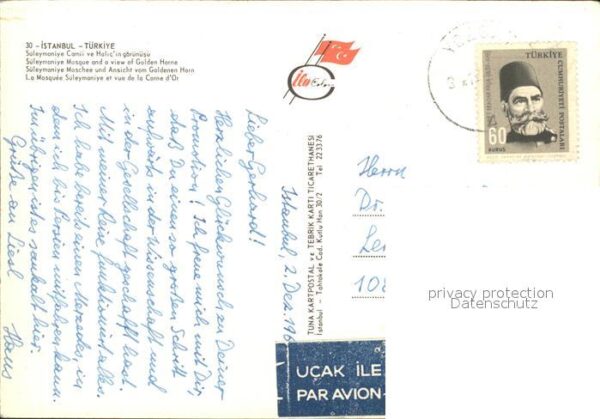 30 - İSTANBUL - TÜRKİYE
Süleymaniye Camii ve Haliç'in görünüşü
Süleymaniye Mosque and a view of Golden Horne
Süleymaniye Moschee und Ansicht vom Goldenen Horn
La Mosquée Süleymaniye et vue de la Corne d'Or
Istanbul, 2. Dez. 196
Lieber Gerhard!
Herzlichen Glückwunsch zu Deiner
Promotion! Ich freue mich mit Dir,
daß Du einen so großen Schritt
aufwärts in der Wissenschaft und
in der Gesellschaft geschafft hast.
Mit meiner Reise funktioniert alles.
Ich habe bereits einen Mercedes, in
dem ich bis Persien mitfahren kann.
Im übrigen ist es saukalt hier.
Grüße an Liesl
Hans
TUNA KARTPOSTAL ve TEBRİK KARTI TİCARETHANESİ
İstanbul - Tahtakale Cad. Kutlu Han 30/2 Tel 223376
Herrn
Dr.
108
TÜRKİYE
CUMHURİYETİ POSTALARI
60
KURUŞ
UÇAK İLE
PAR AVION
privacy protection
Datenschutz